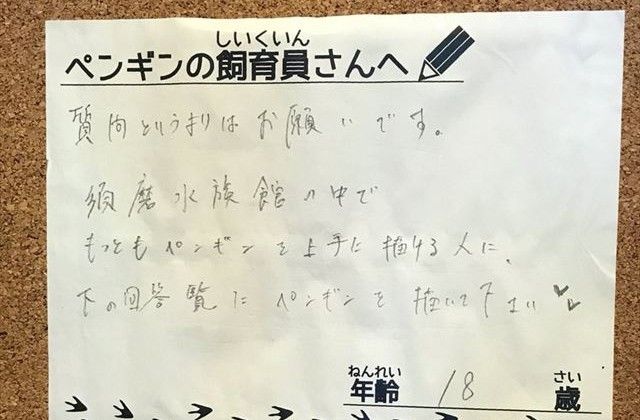 しいくいん
ペンギンの飼育員さんへ
質向というよりはお願いです。
須磨水族館の中で
もっともペンギンを上手に描ける人に、
下の回答覧にペンギンを描いて下さい♡♡
ねんれい さい
年齢 18 歳